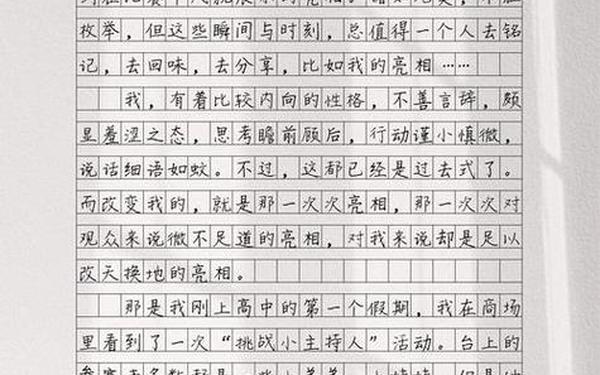 枚举，但这些瞬间与时刻，总值得一个人去铭
记，去回味，去分享，比如我的亮相……
我，有着比较内向的性格，不善言辞，颇
显羞涩之态，思考瞻前顾后，行动谨小慎微，
说话细语如蚊。不过，这都已经是过去式了。
而改变我的，就是那一次次亮相，那一次次对
观众来说微不足道的亮相，对我来说却是足以
改天换地的亮相。
那是我刚上高中的第一个假期，我在商场
里看到了一次“挑战小主持人”活动。台上的